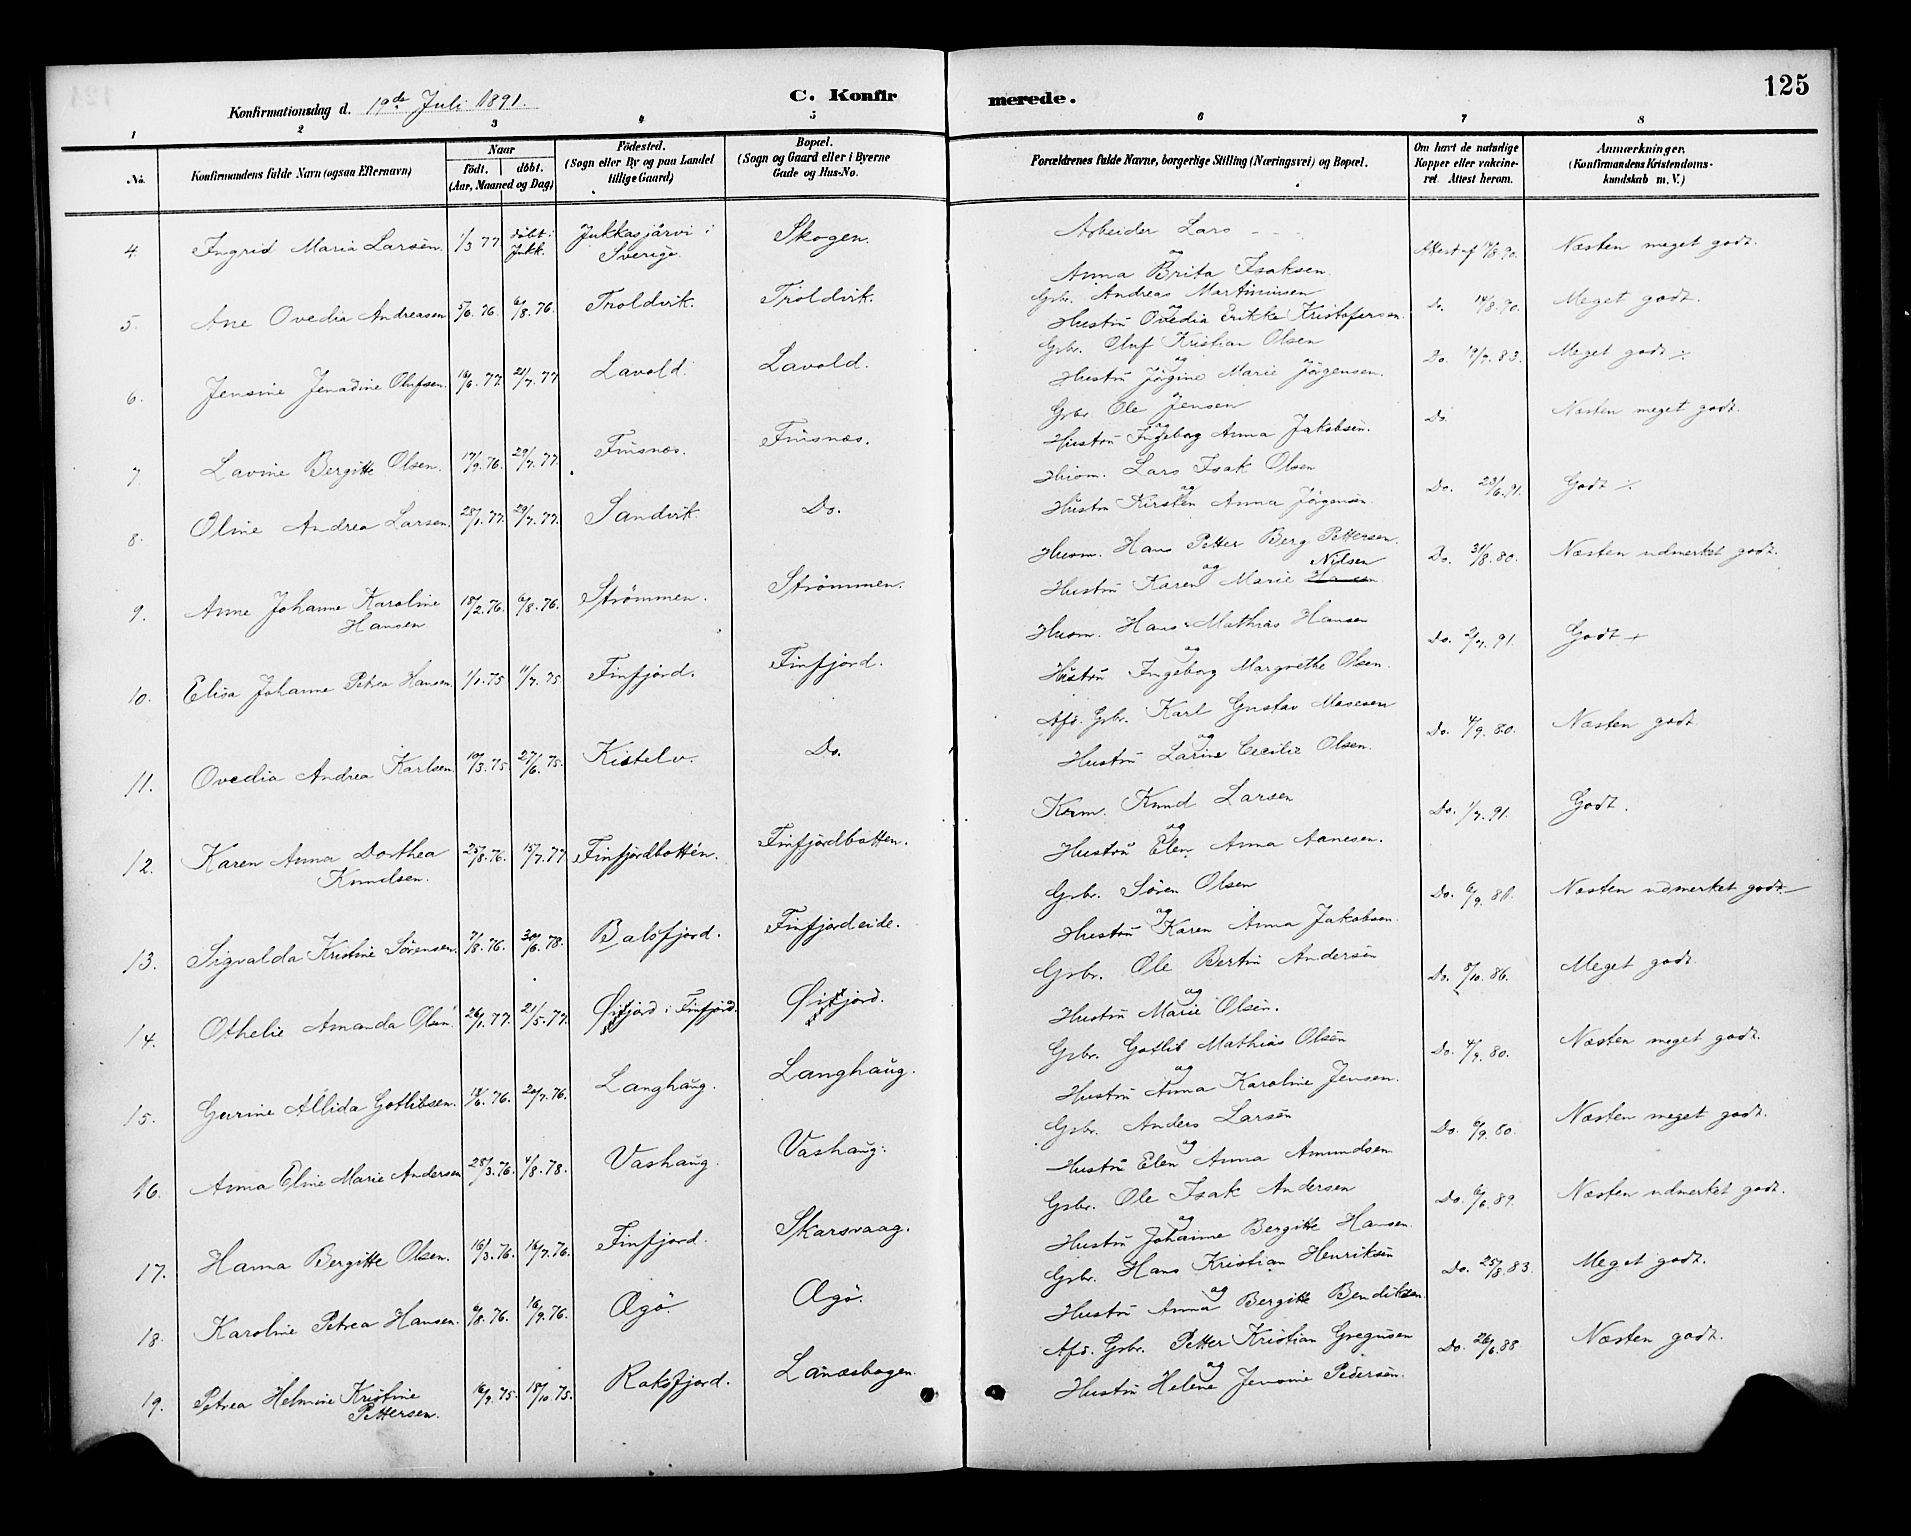 125
Konfirmationsdag d. 19de Juli 1891.
C. Konfirmerede.
1 2 3 4 5 6 7 8
No.
Konfirmandens fulde Navn (ogsaa Efternavn)
Naar
födt. döbt.
(Aar, Maaned og Dag)
Födested.
(Sogn eller By og paa Landet
tillige Gaard)
Bopæl.
(Sogn og Gaard eller i Byerne
Gade og Hus-No.
Forældrenes fulde Navne, borgerlige Stilling (Næringsvei) og Bopæl.
Om havt de naturlige
Kopper eller vakcine-
ret. Attest herom.
Anmærkninger.
(Konfirmandens Kristendoms-
kundskab m. V.)
4. Ingrid Maria Larsen. 1/3 77 döbt i Jukk. Jukkasjärvi i Sverige. Skogen.
Arbeider Lars - - -
og
Anna Brita Isaksen.
Attest af 90. Næsten meget godt.
5. Ane Ovedia Andreasen 5/6. 76. 6/8. 76. Troldvik. Troldvik.
Gbr. Andreas Martinusen
Hustru Ovedia Erikke Kristofersen.
Do. 14/8. 90. Meget godt.
6. Jensine Jenadine Olufsen. 16/6. 77. 21/7. 77 Lavold. Lavold.
Gbr. Oluf Kristian Olsen
og
Hustru Jörgine Marie Jörgensen.
Do. 83. Meget godt
7. Lavine Bergitte Olsen. 17/9. 76. 29/7. 77. Finsnæs. Finsnæs.
Gbr. Ole Jensen
og
Hustru Ingeborg Anna Jakobsen.
Do. Næsten meget godt.
8. Oline Andrea Larsen. 28/1. 77. 29/7. 77. Sandvik. Do.
Husm. Lars Isak Olsen
og
Hustru Kirsten Anna Jörgensen.
Do. 23/6. 91. Godt
9. Anne Johanne Karoline
Hansen
18/2. 76. 6/8. 76. Strömmen. Strömmen.
Husm. Hans Petter Berg Pettersen.
og Nilsen
Hustru Karen Marie
Do. 31/8. 80. Næsten udmerket godt.
10. Elisa Johanne Petrea Hansen. 1/1. 75 11/7. 75. Finfjord. Finfjord.
Husm. Hans Mathias Hansen
og
Hustru Ingeborg Margrethe Olsen.
Do. 2/7. 91. Godt +
11. Ovedia Andrea Karlsen. 19/3. 75. 27/6. 75. Kistelv. Do.
Afd. Gbr. Karl Gustav Mosesen
og
Hustru Larine Cecilie Olsen.
Do. 4/9. 80. Næsten godt
12. Karen Anna Dorthea
Knudsen.
25/8. 76. 15/7. 77 Finfjordbotten. Finfjordbotten.
Knud Larsen
og
Hustru Elen Anna Aanesen.
Do. 1/7. 91. Godt.
13. Sigvalda Kristine Sörensen. 7/8. 76. 30/6. 78. Balsfjord. Finfjordeide.
Gbr. Sören Olsen
og
Hustru Karen Anna Jakobsen.
Do. 6/9. Næsten udmerket godt
14. Othelie Amanda Olsen. 26/1. 77. 21/5. 77. Øifjord i Finfjord. Øifjord.
Gbr. Ole Bertin Andersen
og
Hustru Marie Olsen.
Do. 8/10. 86. Meget godt.
15. Gurine Allida Gotlibsen. 18/6. 76. 20/7. 76. Langhaug. Langhaug.
Gbr. Gotlib Mathias Olsen
og
Hustru Anna Karoline Jensen.
Do. 4/9. 80. Næsten meget godt.
16. Anna Eline Marie Andersen 28/3. 76. 4/8. 78. Vashaug. Vashaug.
Gbr. Anders Larsen
og
Hustru Elen Anna Amundsen.
Do. 6/9. 80. Næsten meget godt.
17. Hanna Bergitte Olsen. 16/3. 76. 16/7. 76. Finfjord. Skarsvaag.
Gbr. Ole Isak Andersen
og
Hustru Johanne Bergitte Hansen.
Do. 6/6. 89. Næsten udmerket godt.
18. Karoline Petrea Hansen. 9/8. 76. 16/9. 76. Ægö. Ægö.
Gbr. Hans Kristian Henriksen
og
Hustru Anna Bergitte Bendiksen.
Do. 25/8. 83. Meget godt.
19. Petrea Helmine Kristine
Pettersen.
16/9. 75. 18/10. 75. Roksfjord. Lanæsbogen.
Afd. Gbr. Petter Kristian Gregusen
og
Hustru Helene Jensine Pedersen.
Do. 26/6. 88 Næsten godt.